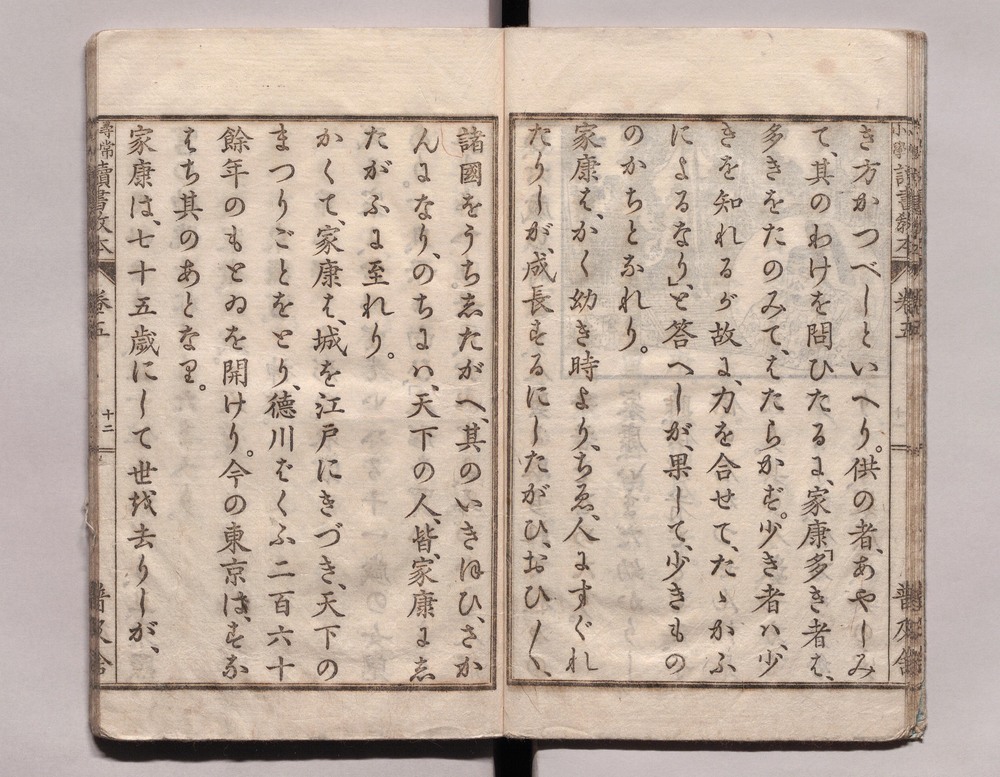 き方かつべしといへり。供の者、あやしみ
て、其のわけを問ひたるに、家康「多き者は、
多きをたのみて、はたらかず。少き者ハ、少
きを知れるが故に、力を合せて、たゝかふ
によるなり」と答へしが、果して、少きもの
のかちとなれり。
家康は、かく幼き時より、ちゑ、人にすぐれ
たりしが、成長するにしたがひ、おひ〳〵、
諸國をうちしたがへ、其のいきほひ、さか
んになり、のちにハ、天下の人、皆、家康にし
たがふに至れり。
かくて、家康は、城を江戸にきづき、天下の
まつりごとをとり、德川ばくふ二百六十
餘年のもとゐを開けり。今の東京は、すな
はち其のあとなり。
家康は、七十五歲にして世を去りしが、
尋常讀書敎本 卷五 十二 普及舍